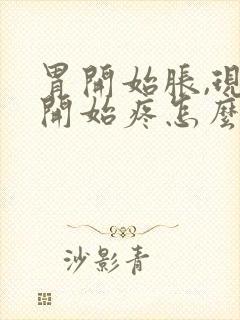 胃開始脹,現
開始疼怎麼
沙影青